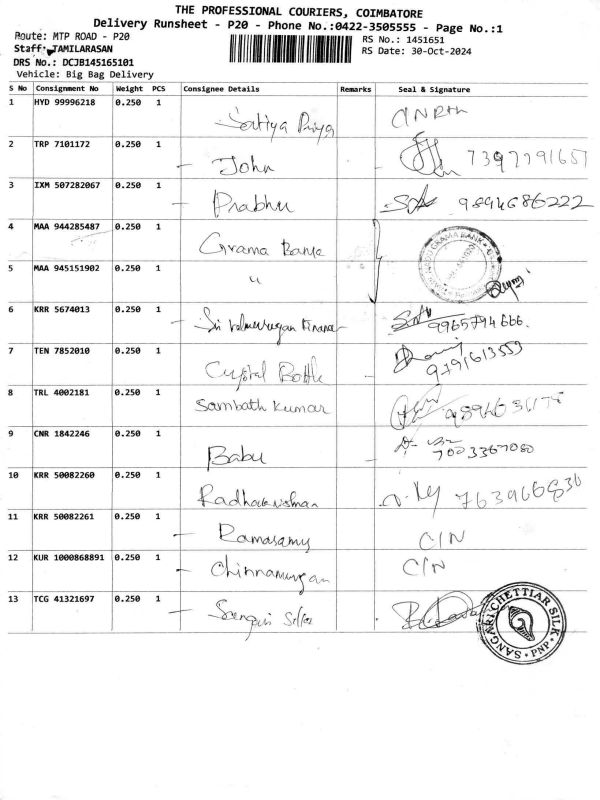 THE PROFESSIONAL COURIERS, COIMBATORE
Delivery Runsheet - P20 - Phone No.:0422-3505555 - Page No.:1
Route: MTP ROAD - P20
RS No.: 1451651
Staff: TAMILARASAN
RS Date: 30-Oct-2024
DRS No.: DCJB145165101
Vehicle: Big Bag Delivery
S No Consignment No Weight PCS Consignee Details Remarks Seal & Signature
1 HYD 99996218 0.250 1 Sathya Priya
2 TRP 7101172 0.250 1 John 7397791657
3 IXM 507282067 0.250 1 Prabhu 9894686222
4 MAA 944285487 0.250 1 Grama Bank
5 MAA 945151902 0.250 1 "
6 KRR 5674013 0.250 1 Sri Finance 9965794666
7 TEN 7852010 0.250 1 Crystal Bottle 9791613553
8 TRL 4002181 0.250 1 Sambath Kumar
9 CNR 1842246 0.250 1 Babu
10 KRR 50082260 0.250 1 Radhakrishnan
11 KRR 50082261 0.250 1 Ramasamy C/N
12 KUR 1000868891 0.250 1 Chinnamurgan C/N
13 TCG 41321697 0.250 1
SANGARI CHETTIAR SILK
PNP